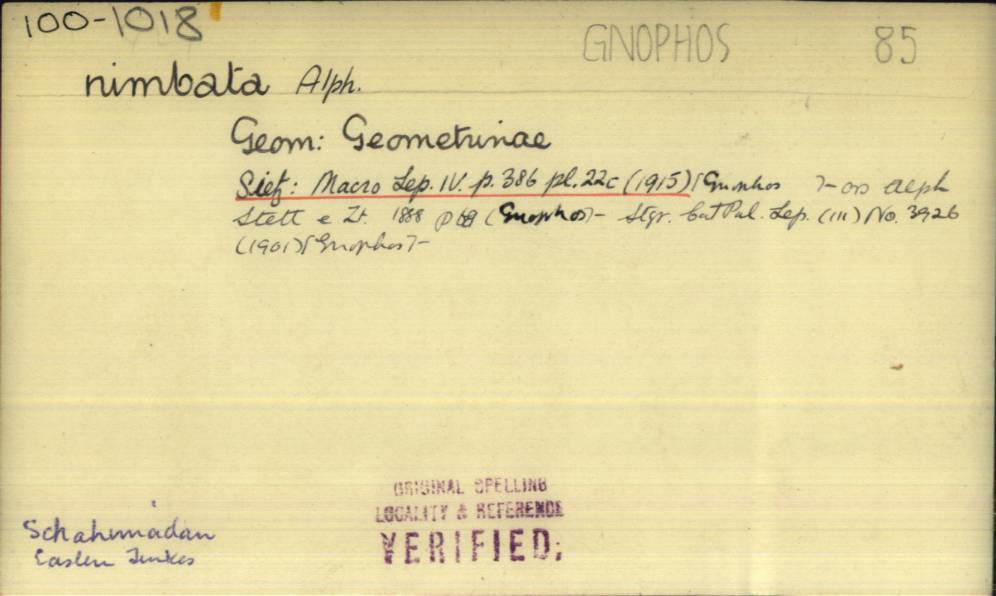 100-1018
GNOPHOS 85
nimbata Alph.
Geom: Geometrinae
Sietz: Macro Lep. IV. p. 386 pl. 22c (1915) [Gnophos ]- as Alph
Stett e Zt. 1888 p 68 (Gnophos)- Stgr. Cat Pal. Lep. (III) No. 3926
(1901) [Gnophos]-
Schahimadan
Eastern
ORIGINAL SPELLING
LOCALITY & REFERENCE
VERIFIED: